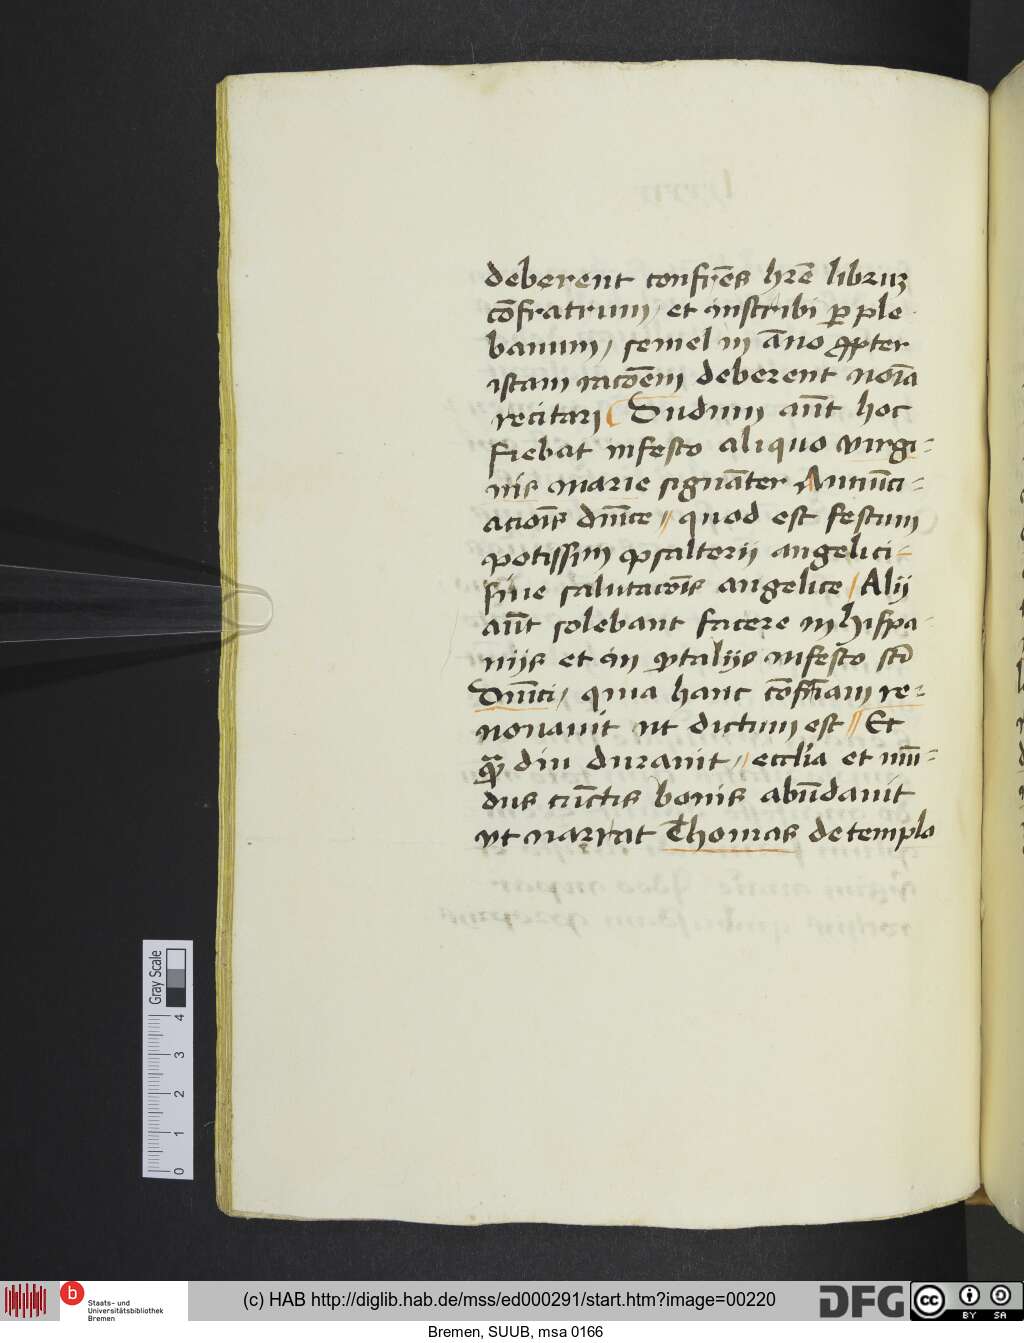 deberent confrēs hrē libruȝ
cōfratrum, et inscribi ꝑ ple
banum, semel in āno ꝓpter
istam racōem deberent noīa
recitari Dudum aūt hoc
fiebat infesto aliquo virgi-
nis marie signāter Annūci-
acioīs dnīce // quod est festum
potissim psalterij angelici-
siue salutacōis angelice / Alij
aūt solebant facere in hispa-
nijs et in ytalijs infesto sti
Dnīci, quia hanc cōfrīam re-
nouauit ut dictum est // Et
diu durauit // ecclīa et mū-
dus cūctis bonis abūdauit
vt narrat Thomas de templo
Gray Scale
0 1 2 3 4
b Staats- und
Universitätsbibliothek
Bremen
(c) HAB http://diglib.hab.de/mss/ed000291/start.htm?image=00220
DFG
cc BY SA
Bremen, SUUB, msa 0166